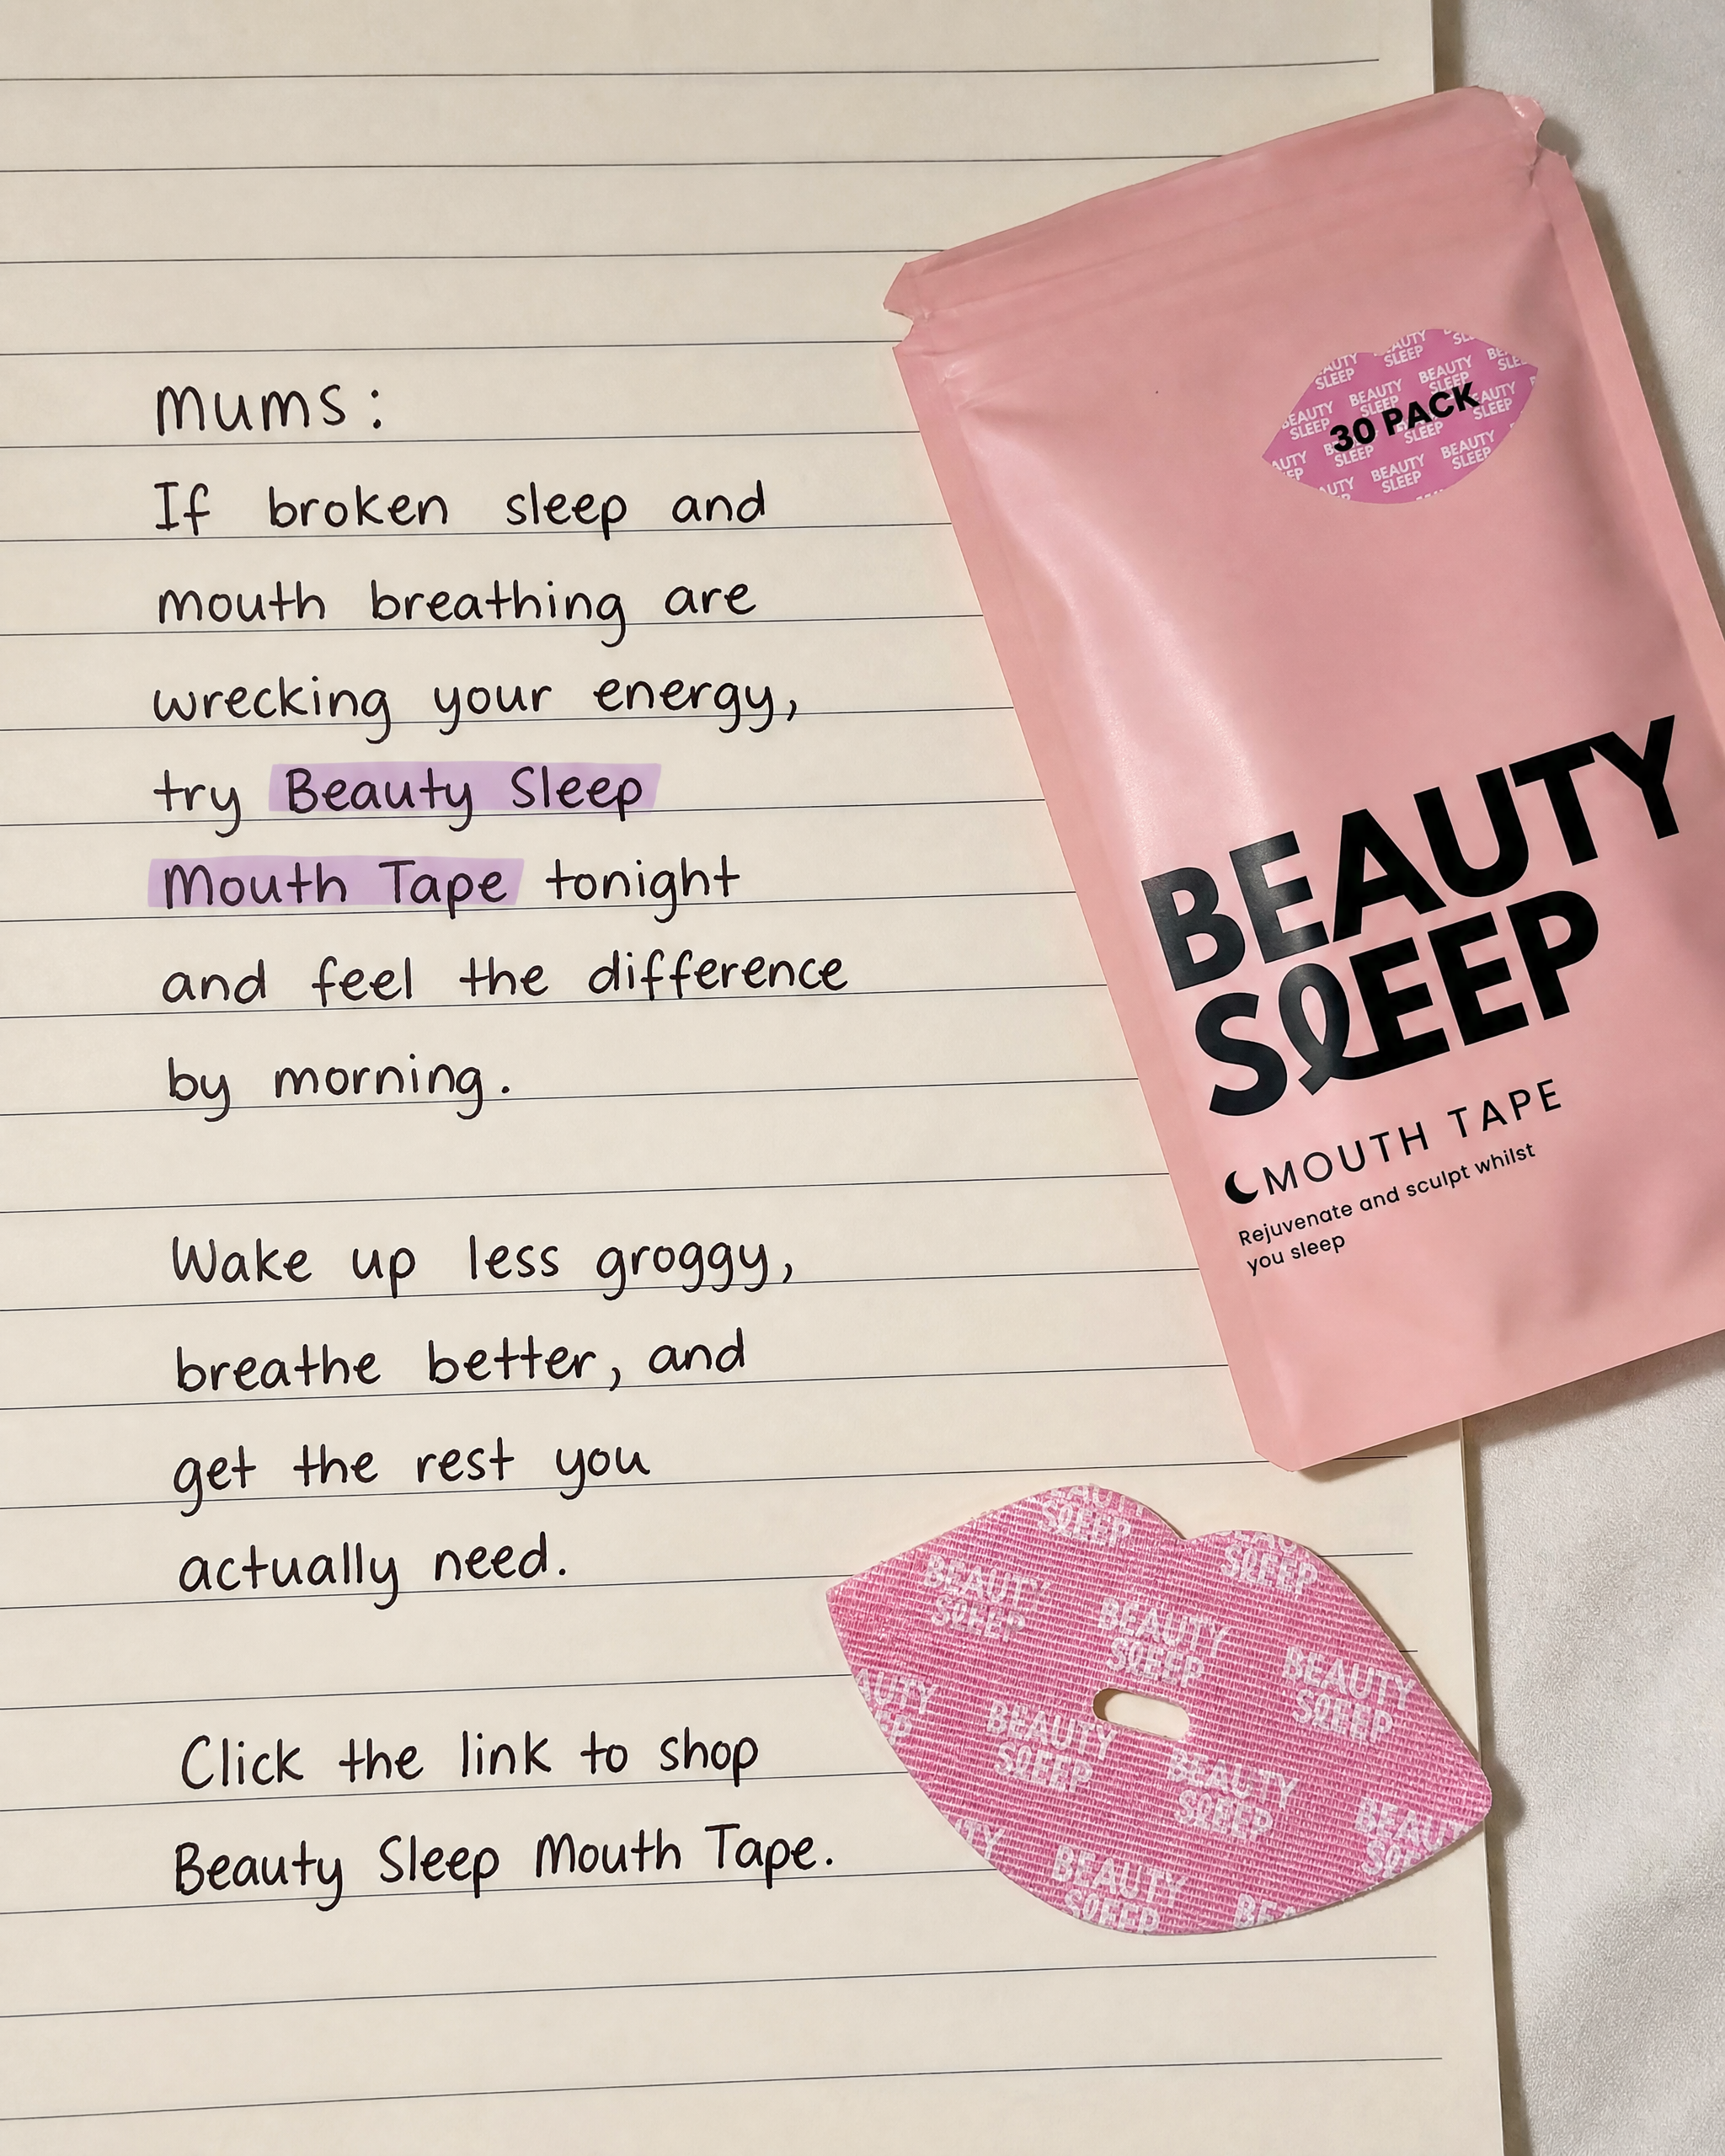 mums:
If broken sleep and
mouth breathing are
wrecking your energy,
try Beauty Sleep
Mouth Tape tonight
and feel the difference
by morning.
Wake up less groggy,
breathe better, and
get the rest you
actually need.
Click the link to shop
Beauty Sleep Mouth Tape.
30 PACK
BEAUTY
SLEEP
MOUTH TAPE
Rejuvenate and sculpt whilst
you sleep
BEAUTY
SLEEP
BEAUTY
SLEEP
BEAUTY
SLEEP
BEAUTY
SLEEP
BEAUTY
SLEEP
BEAUTY
SLEEP